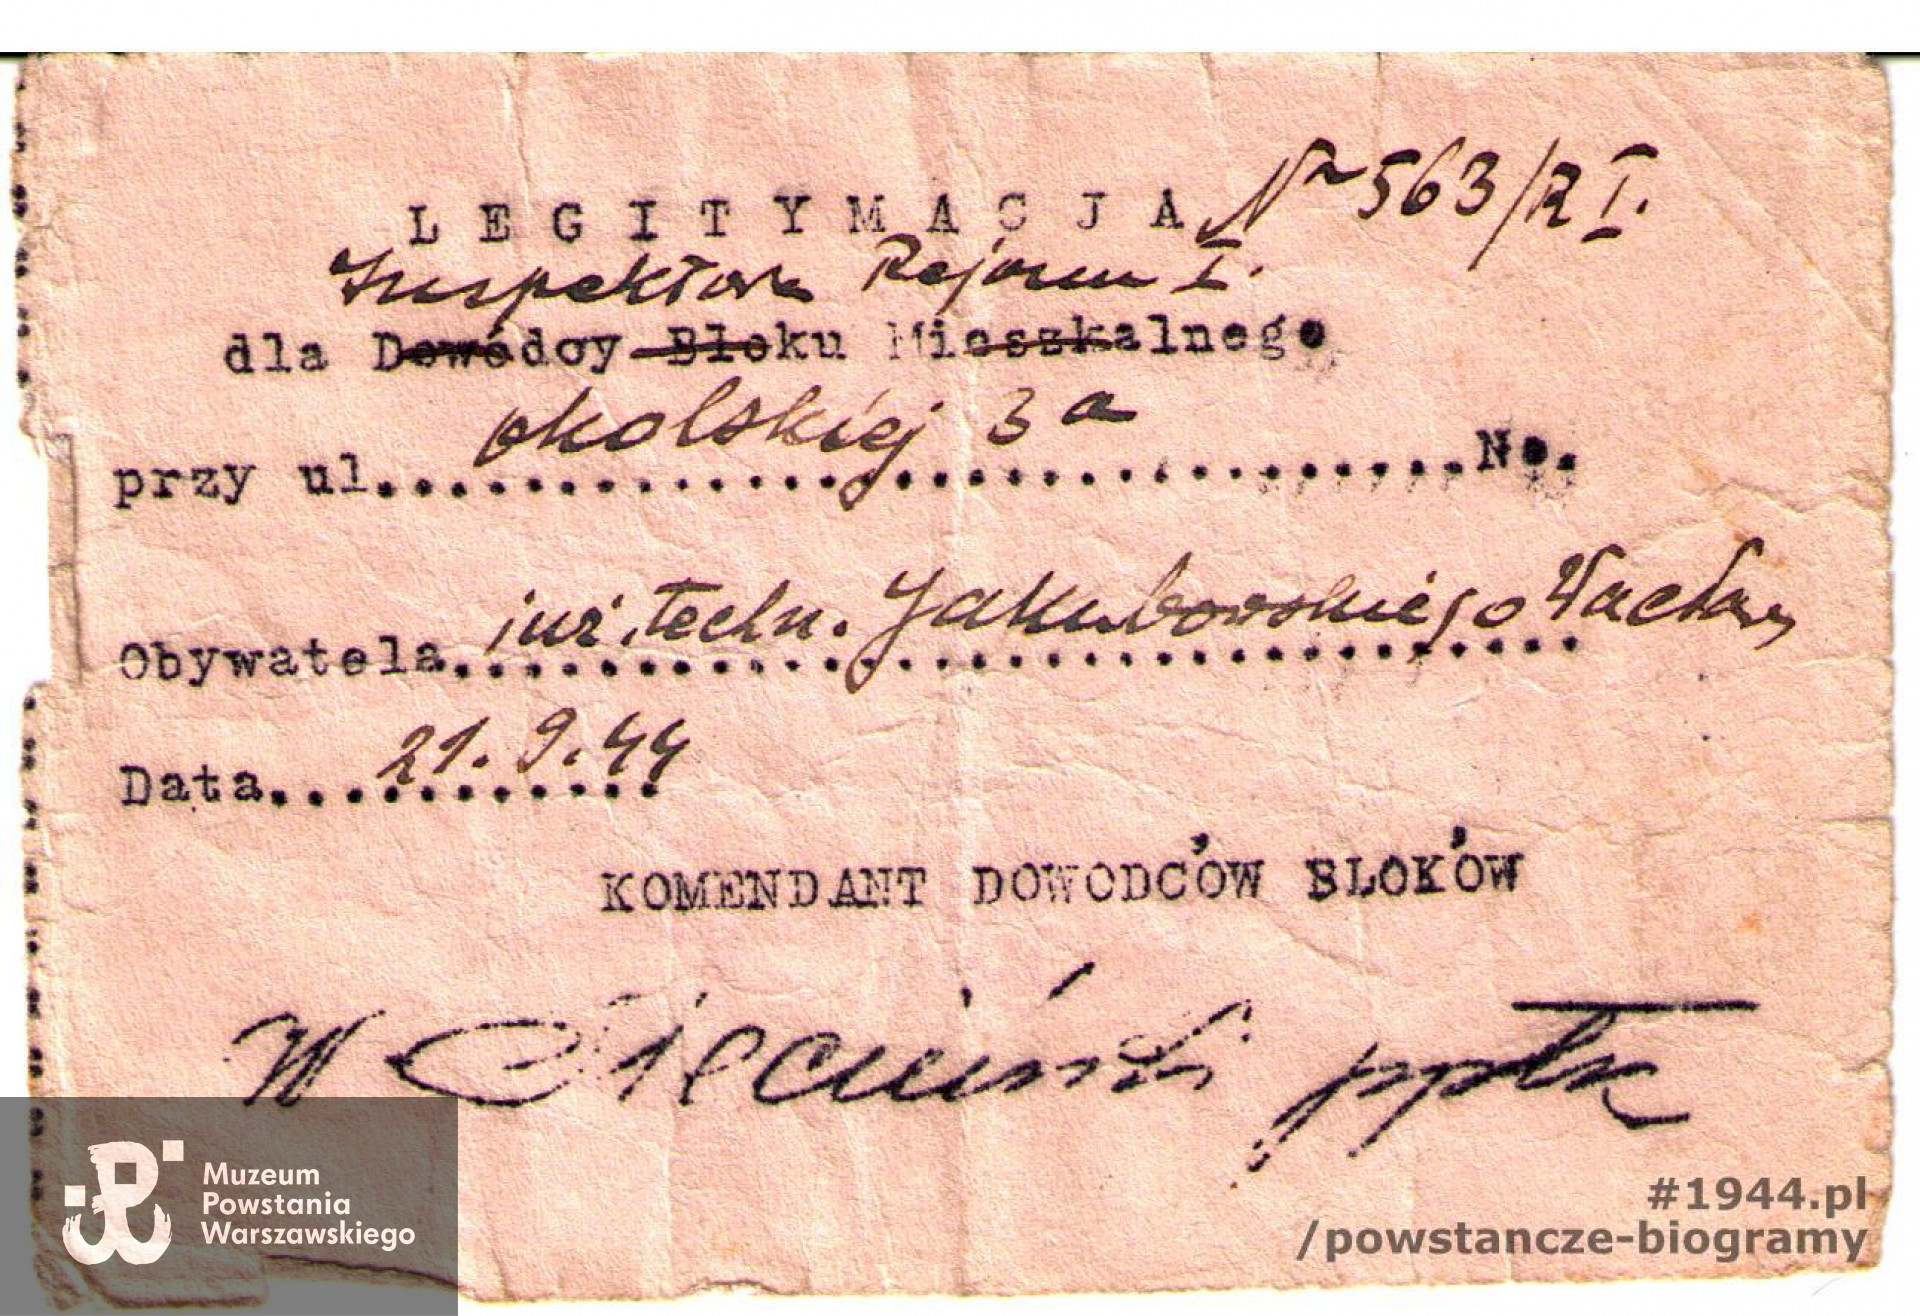 LEGITYMACJA Nr 563/R I.
Inspektora Rejonu I.
dla Dowódcy Bloku Mieszkalnego
przy ul. okolskiej 3a No.
Obywatela inż. techn. Jakubowskiego Wacława
Data 21.9.44
KOMENDANT DOWODCÓW BLOKÓW
W ppłk
Muzeum
Powstania
Warszawskiego
#1944.pl
/powstancze-biogramy